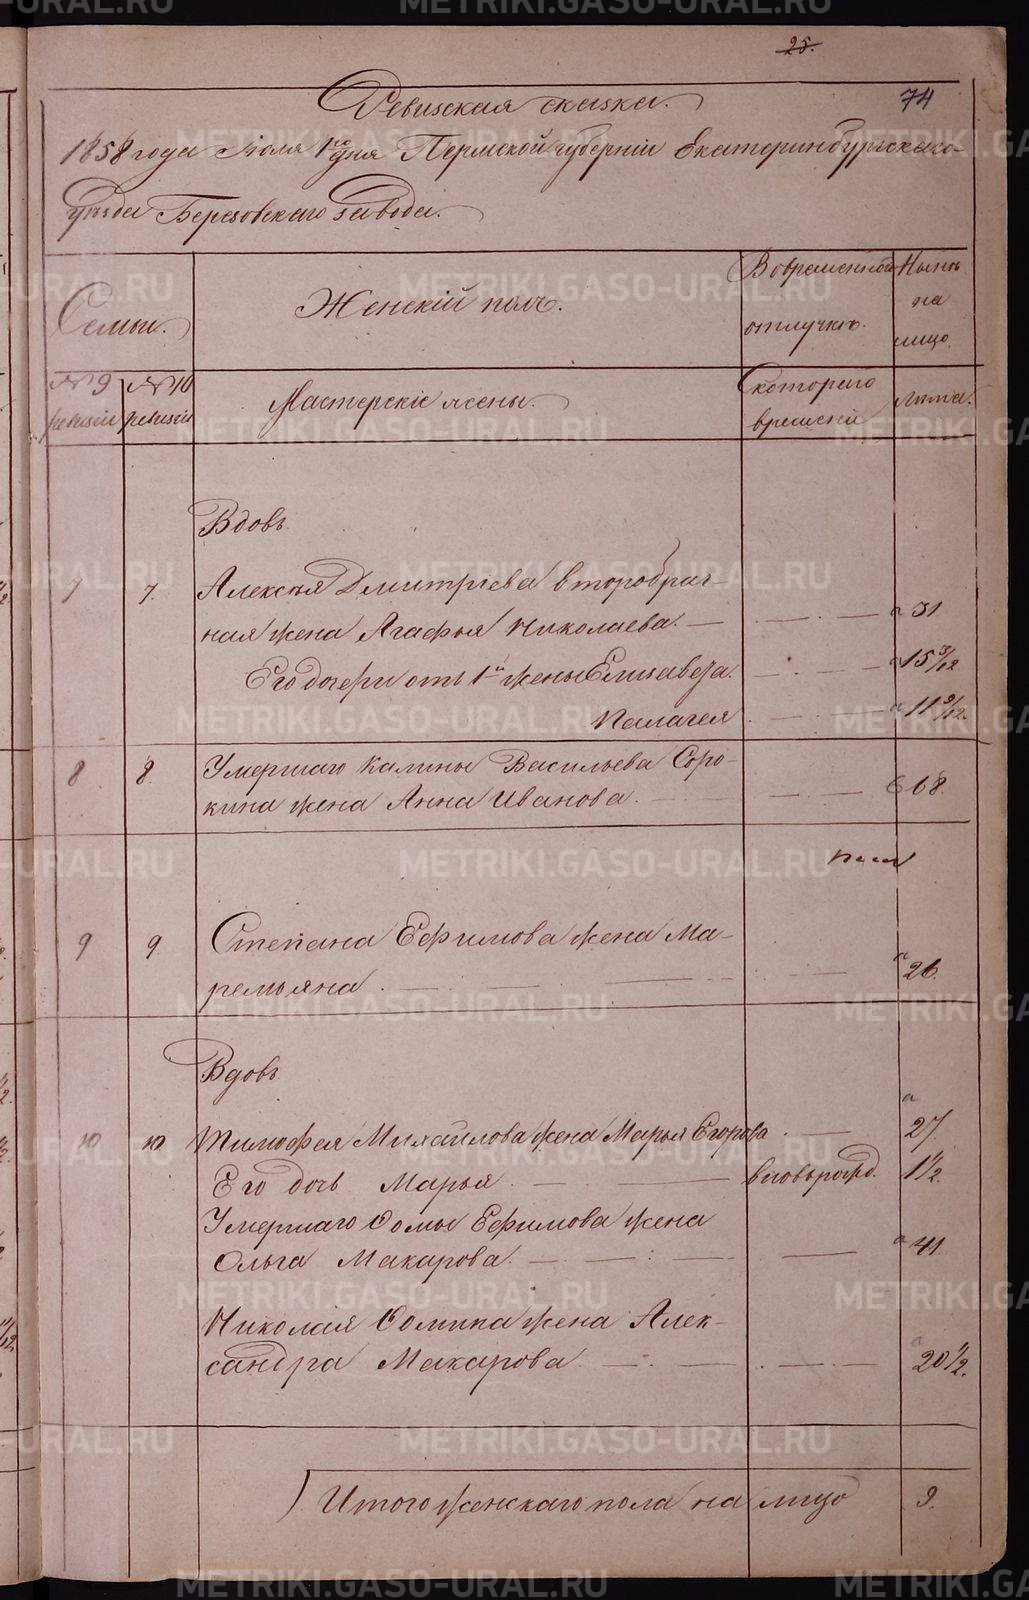 25.
74
Ревизская сказка.
1858 года Іюля 1го дня Пермской губерніи Екатеринбургскаго
уѣзда Березовскаго завода.
Семьи.
Женскій полъ.
Во временной отлучкѣ.
Нынѣ на лицо.
№ 9 ревизіи
№ 10 ревизіи
Мастерскіе жены.
Съ котораго времени
Лѣта.
Вдовъ
7 7. Алексѣя Дмитріева второбрач-
ная жена Агафья Николаева. 31
Его дочери отъ 1й жены Елизавета. 15 3/12
Палагея 11 9/12.
8 8. Умершаго Калины Васильева Соро-
кина жена Анна Иванова. 68
9 9. Степана Ефимова жена Ма-
ремьяна. 26.
Вдовъ
10 10 Тимофея Михайлова жена Марья Егорова 27.
Его дочь Марья вновьрожд. 1 1/2.
Умершаго Ѳомы Ефимова жена
Ольга Макарова. 41
Николая Ѳомина жена Алек-
сандра Макарова 20 1/2.
Итого женскаго пола на лицо 9.
METRIKI.GASO-URAL.RU